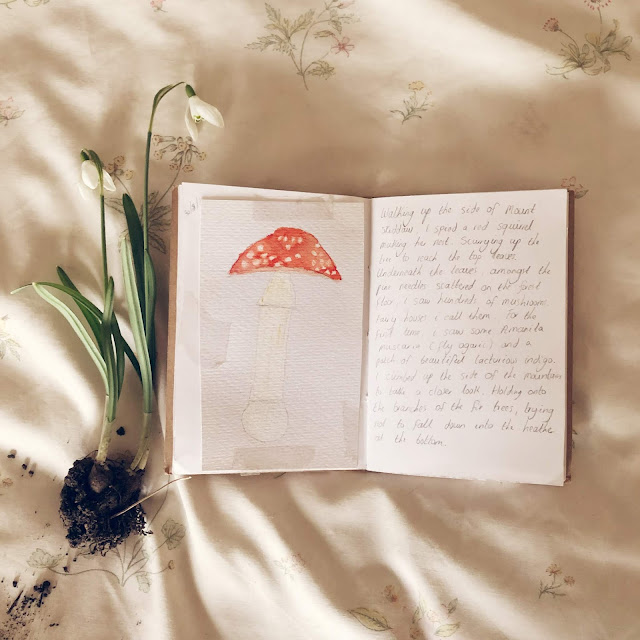 Walking up the side of Mount
Skiddaw I spied a red squirrel
making his nest. Scurrying up the
tree to reach the top leaves.
Underneath the trees amongst the
pine needles scattered on the forest
floor I saw hundreds of mushrooms
fairy houses I call them. For the
first time I saw some Amanita
muscaria (fly agaric) and a
patch of beautiful lactarious indigo.
I climbed up the side of the mountain
to take a closer look. Holding onto
the branches of the fir trees, trying
not to fall down into the heathe
at the bottom.